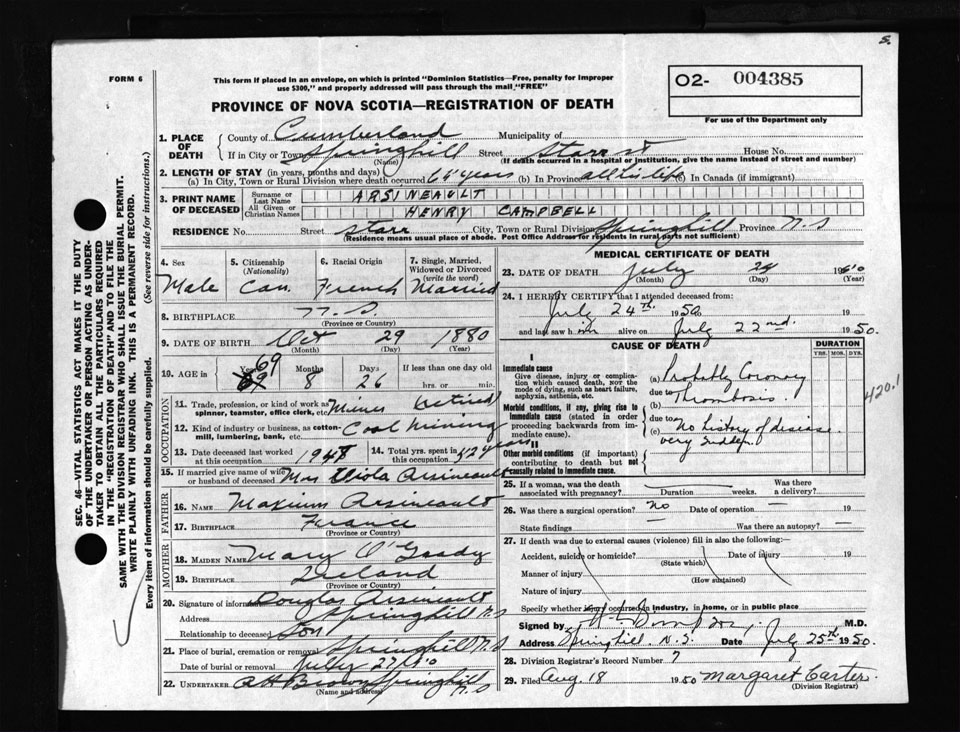 S.
FORM 6
This form if placed in an envelope, on which is printed "Dominion Statistics—Free, penalty for improper
use $300," and properly addressed will pass through the mail "FREE"
O2- 004385
For use of the Department only
PROVINCE OF NOVA SCOTIA—REGISTRATION OF DEATH
1. PLACE OF DEATH County of Cumberland Municipality of
If in City or Town Springhill (Name) Street Starr St House No.
(If death occurred in a hospital or institution, give the name instead of street and number)
2. LENGTH OF STAY (in years, months and days)
(a) In City, Town or Rural Division where death occurred years (b) In Province all his life (c) In Canada (if immigrant)
3. PRINT NAME OF DECEASED Surname or Last Name ARSINEAULT
All Given or Christian Names HENRY CAMPBELL
RESIDENCE No. Street Starr City, Town or Rural Division Springhill Province N.S
(Residence means usual place of abode. Post Office Address for residents in rural parts not sufficient)
4. Sex 5. Citizenship (Nationality) 6. Racial Origin 7. Single, Married, Widowed or Divorced (write the word)
Male Can. French Married
8. BIRTHPLACE N.S. (Province or Country)
9. DATE OF BIRTH Oct (Month) 29 (Day) 1880 (Year)
10. AGE in Years 69 Months 8 Days 26 If less than one day old hrs. or min.
OCCUPATION
11. Trade, profession, or kind of work as spinner, teamster, office clerk, etc. Miner Retired
12. Kind of industry or business, as cotton-mill, lumbering, bank, etc. Coal Mining
13. Date deceased last worked at this occupation 1948 14. Total yrs. spent in this occupation 52 years
15. If married give name of wife or husband of deceased Mrs Viola Arsineault
FATHER
16. NAME Arsineault
17. BIRTHPLACE France
MOTHER
18. MAIDEN NAME Mary O'Grady
19. BIRTHPLACE Ireland (Province or Country)
20. Signature of informant Douglas Arsineault
Address Springhill N.S
Relationship to deceased Son
21. Place of burial, cremation or removal Springhill N.S
Date of burial or removal July 27
22. UNDERTAKER Brown Springhill N.S
(Name and address)
MEDICAL CERTIFICATE OF DEATH
23. DATE OF DEATH July (Month) 24 (Day) 19 (Year)
24. I HEREBY CERTIFY that I attended deceased from:
July 24th. 1950 to 19
and last saw him alive on July 22nd. 1950.
CAUSE OF DEATH DURATION
YRS. MOS. DYS.
I
Immediate cause
Give disease, injury or complication which caused death, NOT the mode of dying, such as heart failure, asphyxia, asthenia, etc.
(a) Probably Coronary
due to Thrombosis.
(b)
Morbid conditions, if any, giving rise to immediate cause (stated in order proceeding backwards from immediate cause).
due to
(c) No history of disease.
very sudden.
II
Other morbid conditions (if important) contributing to death but not causally related to immediate cause.
420.1
25. If a woman, was the death associated with pregnancy? Duration weeks. Was there a delivery?
26. Was there a surgical operation? no Date of operation — 19
State findings — Was there an autopsy? —
27. If death was due to external causes (violence) fill in also the following:—
Accident, suicide or homicide? (State which) Date of injury 19
Manner of injury (How sustained)
Nature of injury
Specify whether injury occurred in industry, in home, or in public place
Signed by M.D.
Address Springhill N.S. Date July 25th 1950.
28. Division Registrar's Record Number 7
29. Filed Aug. 18 1950 Margaret Carter
(Division Registrar)
SEC. 46—VITAL STATISTICS ACT MAKES IT THE DUTY
OF THE UNDERTAKER OR PERSON ACTING AS UNDER-
TAKER TO OBTAIN ALL THE PARTICULARS REQUIRED
IN THE "REGISTRATION OF DEATH" AND TO FILE THE
SAME WITH THE DIVISION REGISTRAR WHO SHALL ISSUE THE BURIAL PERMIT.
WRITE PLAINLY WITH UNFADING INK. THIS IS A PERMANENT RECORD.
Every item of information should be carefully supplied. (See reverse side for instructions.)